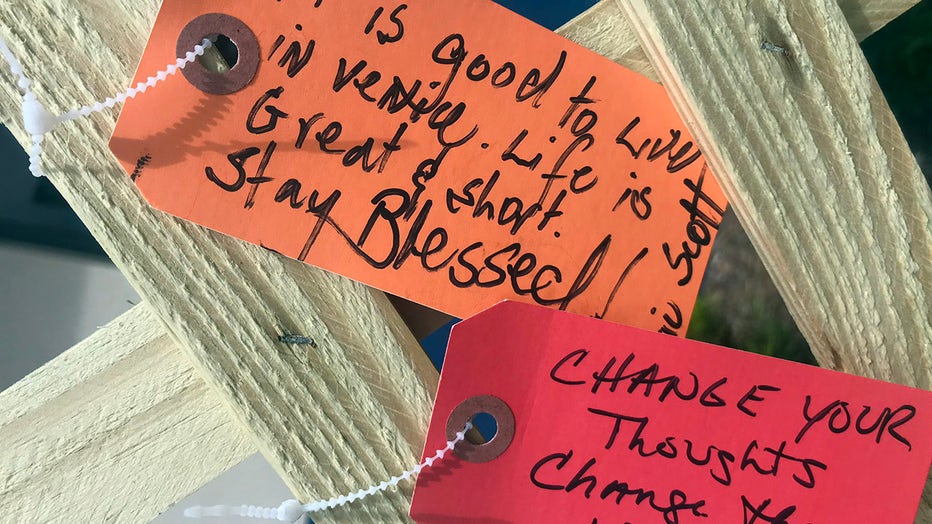 is good to Live
in venice. Life is
Great & short.
Stay Blessed!
Scott
CHANGE YOUR
Thoughts
Change